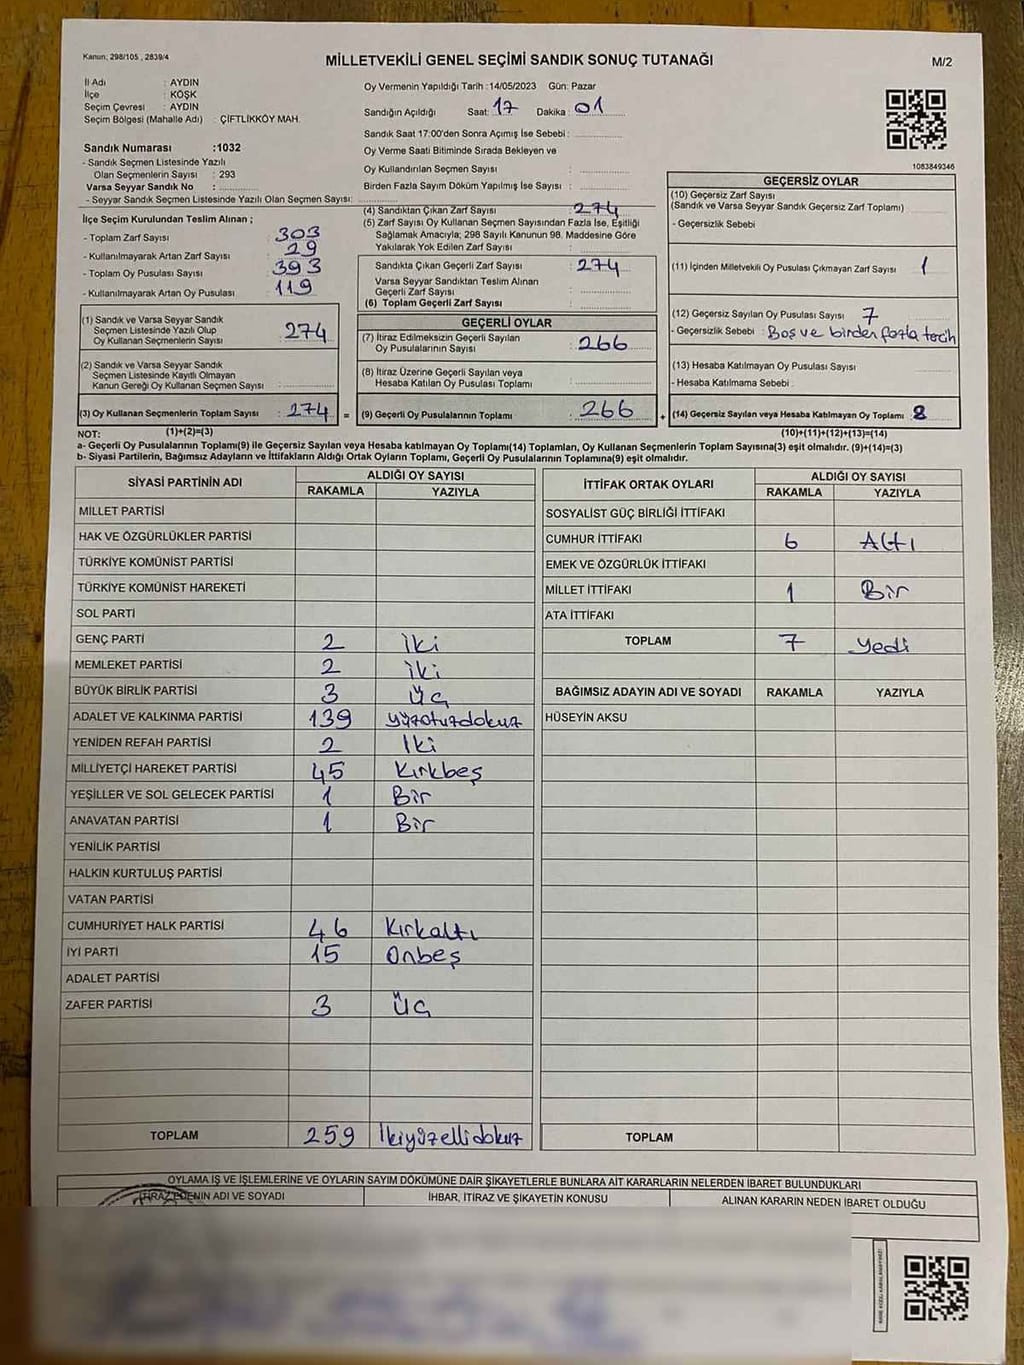 Kanun: 298/105 , 2839/4
MİLLETVEKİLİ GENEL SEÇİMİ SANDIK SONUÇ TUTANAĞI
M/2
İl Adı : AYDIN
İlçe : KÖŞK
Seçim Çevresi : AYDIN
Seçim Bölgesi (Mahalle Adı) : ÇİFTLİKKÖY MAH.
Oy Vermenin Yapıldığı Tarih :14/05/2023 Gün: Pazar
Sandığın Açıldığı Saat: 17 Dakika : 01
Sandık Saat 17:00'den Sonra Açımış İse Sebebi :
Oy Verme Saati Bitiminde Sırada Bekleyen ve
Oy Kullandırılan Seçmen Sayısı :
Birden Fazla Sayım Döküm Yapılmış İse Sayısı :
Sandık Numarası :1032
- Sandık Seçmen Listesinde Yazılı
Olan Seçmenlerin Sayısı : 293
Varsa Seyyar Sandık No :
- Seyyar Sandık Seçmen Listesinde Yazılı Olan Seçmen Sayısı:
İlçe Seçim Kurulundan Teslim Alınan ;
- Toplam Zarf Sayısı : 303
- Kullanılmayarak Artan Zarf Sayısı : 29
- Toplam Oy Pusulası Sayısı : 393
- Kullanılmayarak Artan Oy Pusulası : 119
(1) Sandık ve Varsa Seyyar Sandık
Seçmen Listesinde Yazılı Olup
Oy Kullanan Seçmenlerin Sayısı : 274
(2) Sandık ve Varsa Seyyar Sandık
Seçmen Listesinde Kayıtlı Olmayan
Kanun Gereği Oy Kullanan Seçmen Sayısı :
(3) Oy Kullanan Seçmenlerin Toplam Sayısı : 274 =
(1)+(2)=(3)
(4) Sandıktan Çıkan Zarf Sayısı : 274
(5) Zarf Sayısı Oy Kullanan Seçmen Sayısından Fazla İse, Eşitliği
Sağlamak Amacıyla; 298 Sayılı Kanunun 98. Maddesine Göre
Yakılarak Yok Edilen Zarf Sayısı :
Sandıkta Çıkan Geçerli Zarf Sayısı : 274
Varsa Seyyar Sandıktan Teslim Alınan
Geçerli Zarf Sayısı :
(6) Toplam Geçerli Zarf Sayısı :
GEÇERLİ OYLAR
(7) İtiraz Edilmeksizin Geçerli Sayılan
Oy Pusulalarının Sayısı : 266
(8) İtiraz Üzerine Geçerli Sayılan veya
Hesaba Katılan Oy Pusulası Toplamı :
(9) Geçerli Oy Pusulalarının Toplamı : 266 +
1083849346
GEÇERSİZ OYLAR
(10) Geçersiz Zarf Sayısı
(Sandık ve Varsa Seyyar Sandık Geçersiz Zarf Toplamı) :
- Geçersizlik Sebebi
(11) İçinden Milletvekili Oy Pusulası Çıkmayan Zarf Sayısı : 1
(12) Geçersiz Sayılan Oy Pusulası Sayısı : 7
- Geçersizlik Sebebi : Boş ve birden fazla tercih
(13) Hesaba Katılmayan Oy Pusulası Sayısı :
- Hesaba Katılmama Sebebi :
(14) Geçersiz Sayılan veya Hesaba Katılmayan Oy Toplamı : 8
(10)+(11)+(12)+(13)=(14)
NOT:
a- Geçerli Oy Pusulalarının Toplamı(9) ile Geçersiz Sayılan veya Hesaba katılmayan Oy Toplamı(14) Toplamları, Oy Kullanan Seçmenlerin Toplam Sayısına(3) eşit olmalıdır. (9)+(14)=(3)
b- Siyasi Partilerin, Bağımsız Adayların ve İttifakların Aldığı Ortak Oyların Toplamı, Geçerli Oy Pusulalarının Toplamına(9) eşit olmalıdır.
SİYASİ PARTİNİN ADI
ALDIĞI OY SAYISI
RAKAMLA YAZIYLA
MİLLET PARTİSİ
HAK VE ÖZGÜRLÜKLER PARTİSİ
TÜRKİYE KOMÜNİST PARTİSİ
TÜRKİYE KOMÜNİST HAREKETİ
SOL PARTİ
GENÇ PARTİ 2 iki
MEMLEKET PARTİSİ 2 iki
BÜYÜK BİRLİK PARTİSİ 3 üç
ADALET VE KALKINMA PARTİSİ 139 yüzotuzdokuz
YENİDEN REFAH PARTİSİ 2 İki
MİLLİYETÇİ HAREKET PARTİSİ 45 Kırkbeş
YEŞİLLER VE SOL GELECEK PARTİSİ 1 Bir
ANAVATAN PARTİSİ 1 Bir
YENİLİK PARTİSİ
HALKIN KURTULUŞ PARTİSİ
VATAN PARTİSİ
CUMHURİYET HALK PARTİSİ 46 Kırkaltı
İYİ PARTİ 15 Onbeş
ADALET PARTİSİ
ZAFER PARTİSİ 3 Üç
TOPLAM 259 İkiyüzellidokuz
İTTİFAK ORTAK OYLARI
ALDIĞI OY SAYISI
RAKAMLA YAZIYLA
SOSYALİST GÜÇ BİRLİĞİ İTTİFAKI
CUMHUR İTTİFAKI 6 Altı
EMEK VE ÖZGÜRLÜK İTTİFAKI
MİLLET İTTİFAKI 1 Bir
ATA İTTİFAKI
TOPLAM 7 yedi
BAĞIMSIZ ADAYIN ADI VE SOYADI RAKAMLA YAZIYLA
HÜSEYİN AKSU
TOPLAM
OYLAMA İŞ VE İŞLEMLERİNE VE OYLARIN SAYIM DÖKÜMÜNE DAİR ŞİKAYETLERLE BUNLARA AİT KARARLARIN NELERDEN İBARET BULUNDUKLARI
İTİRAZ EDENİN ADI VE SOYADI
İHBAR, İTİRAZ VE ŞİKAYETİN KONUSU
ALINAN KARARIN NEDEN İBARET OLDUĞU